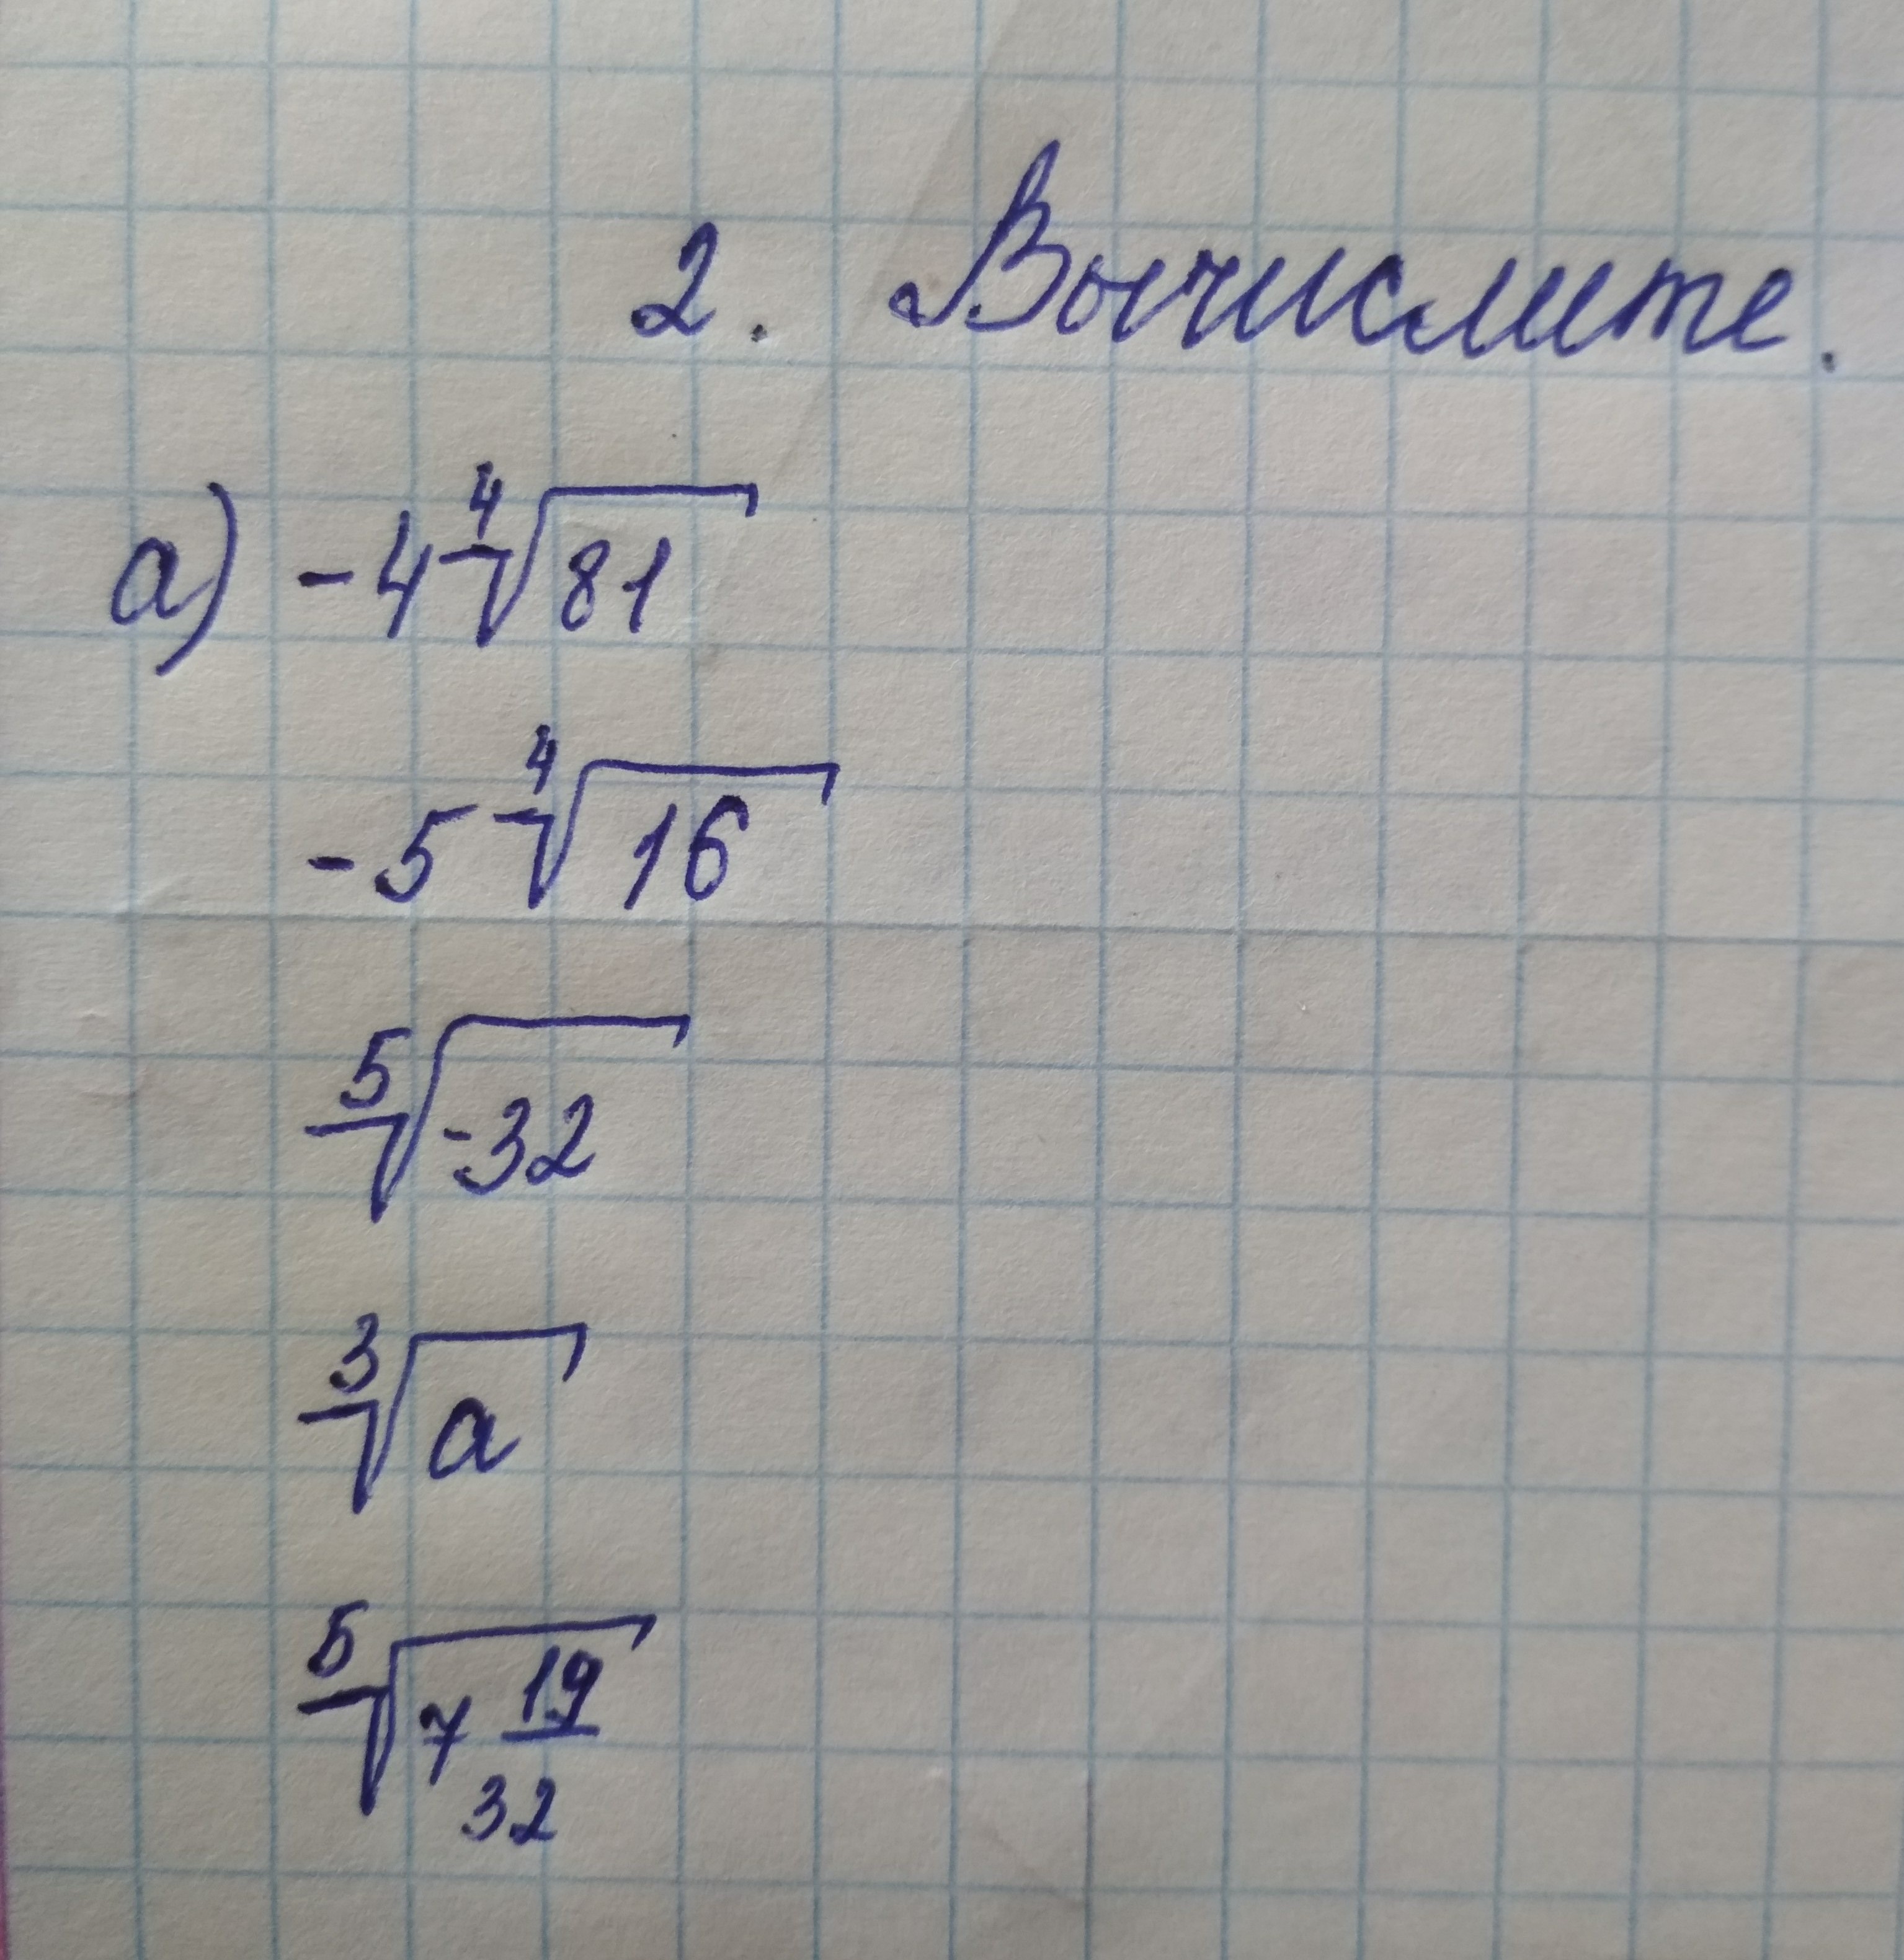 2. Вычислите.
а) -4 ⁴√81
-5 ⁴√16
⁵√-32
³√a
⁵√7 19/32